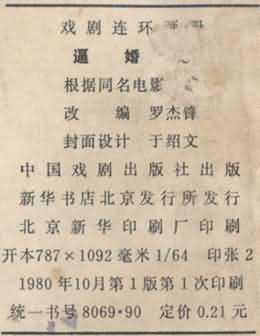 戏剧连环
逼婚
根据同名电影
改编 罗杰锋
封面设计 于绍文
中国戏剧出版社出版
新华书店北京发行所发行
北京新华印刷厂印刷
开本787×1092毫米1/64 印张2
1980年10月第1版第1次印刷
统一书号8069·90 定价0.21元